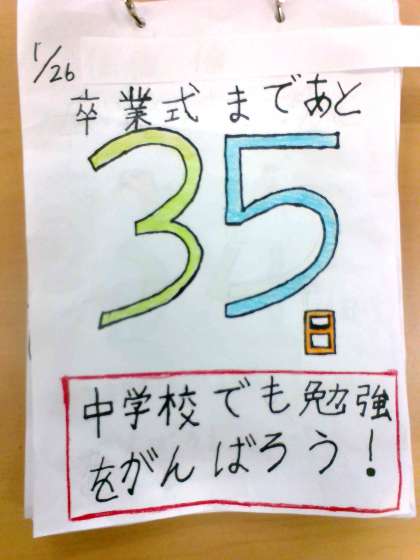 1/26
卒業式まであと
35
日
中学校でも勉強
をがんばろう！